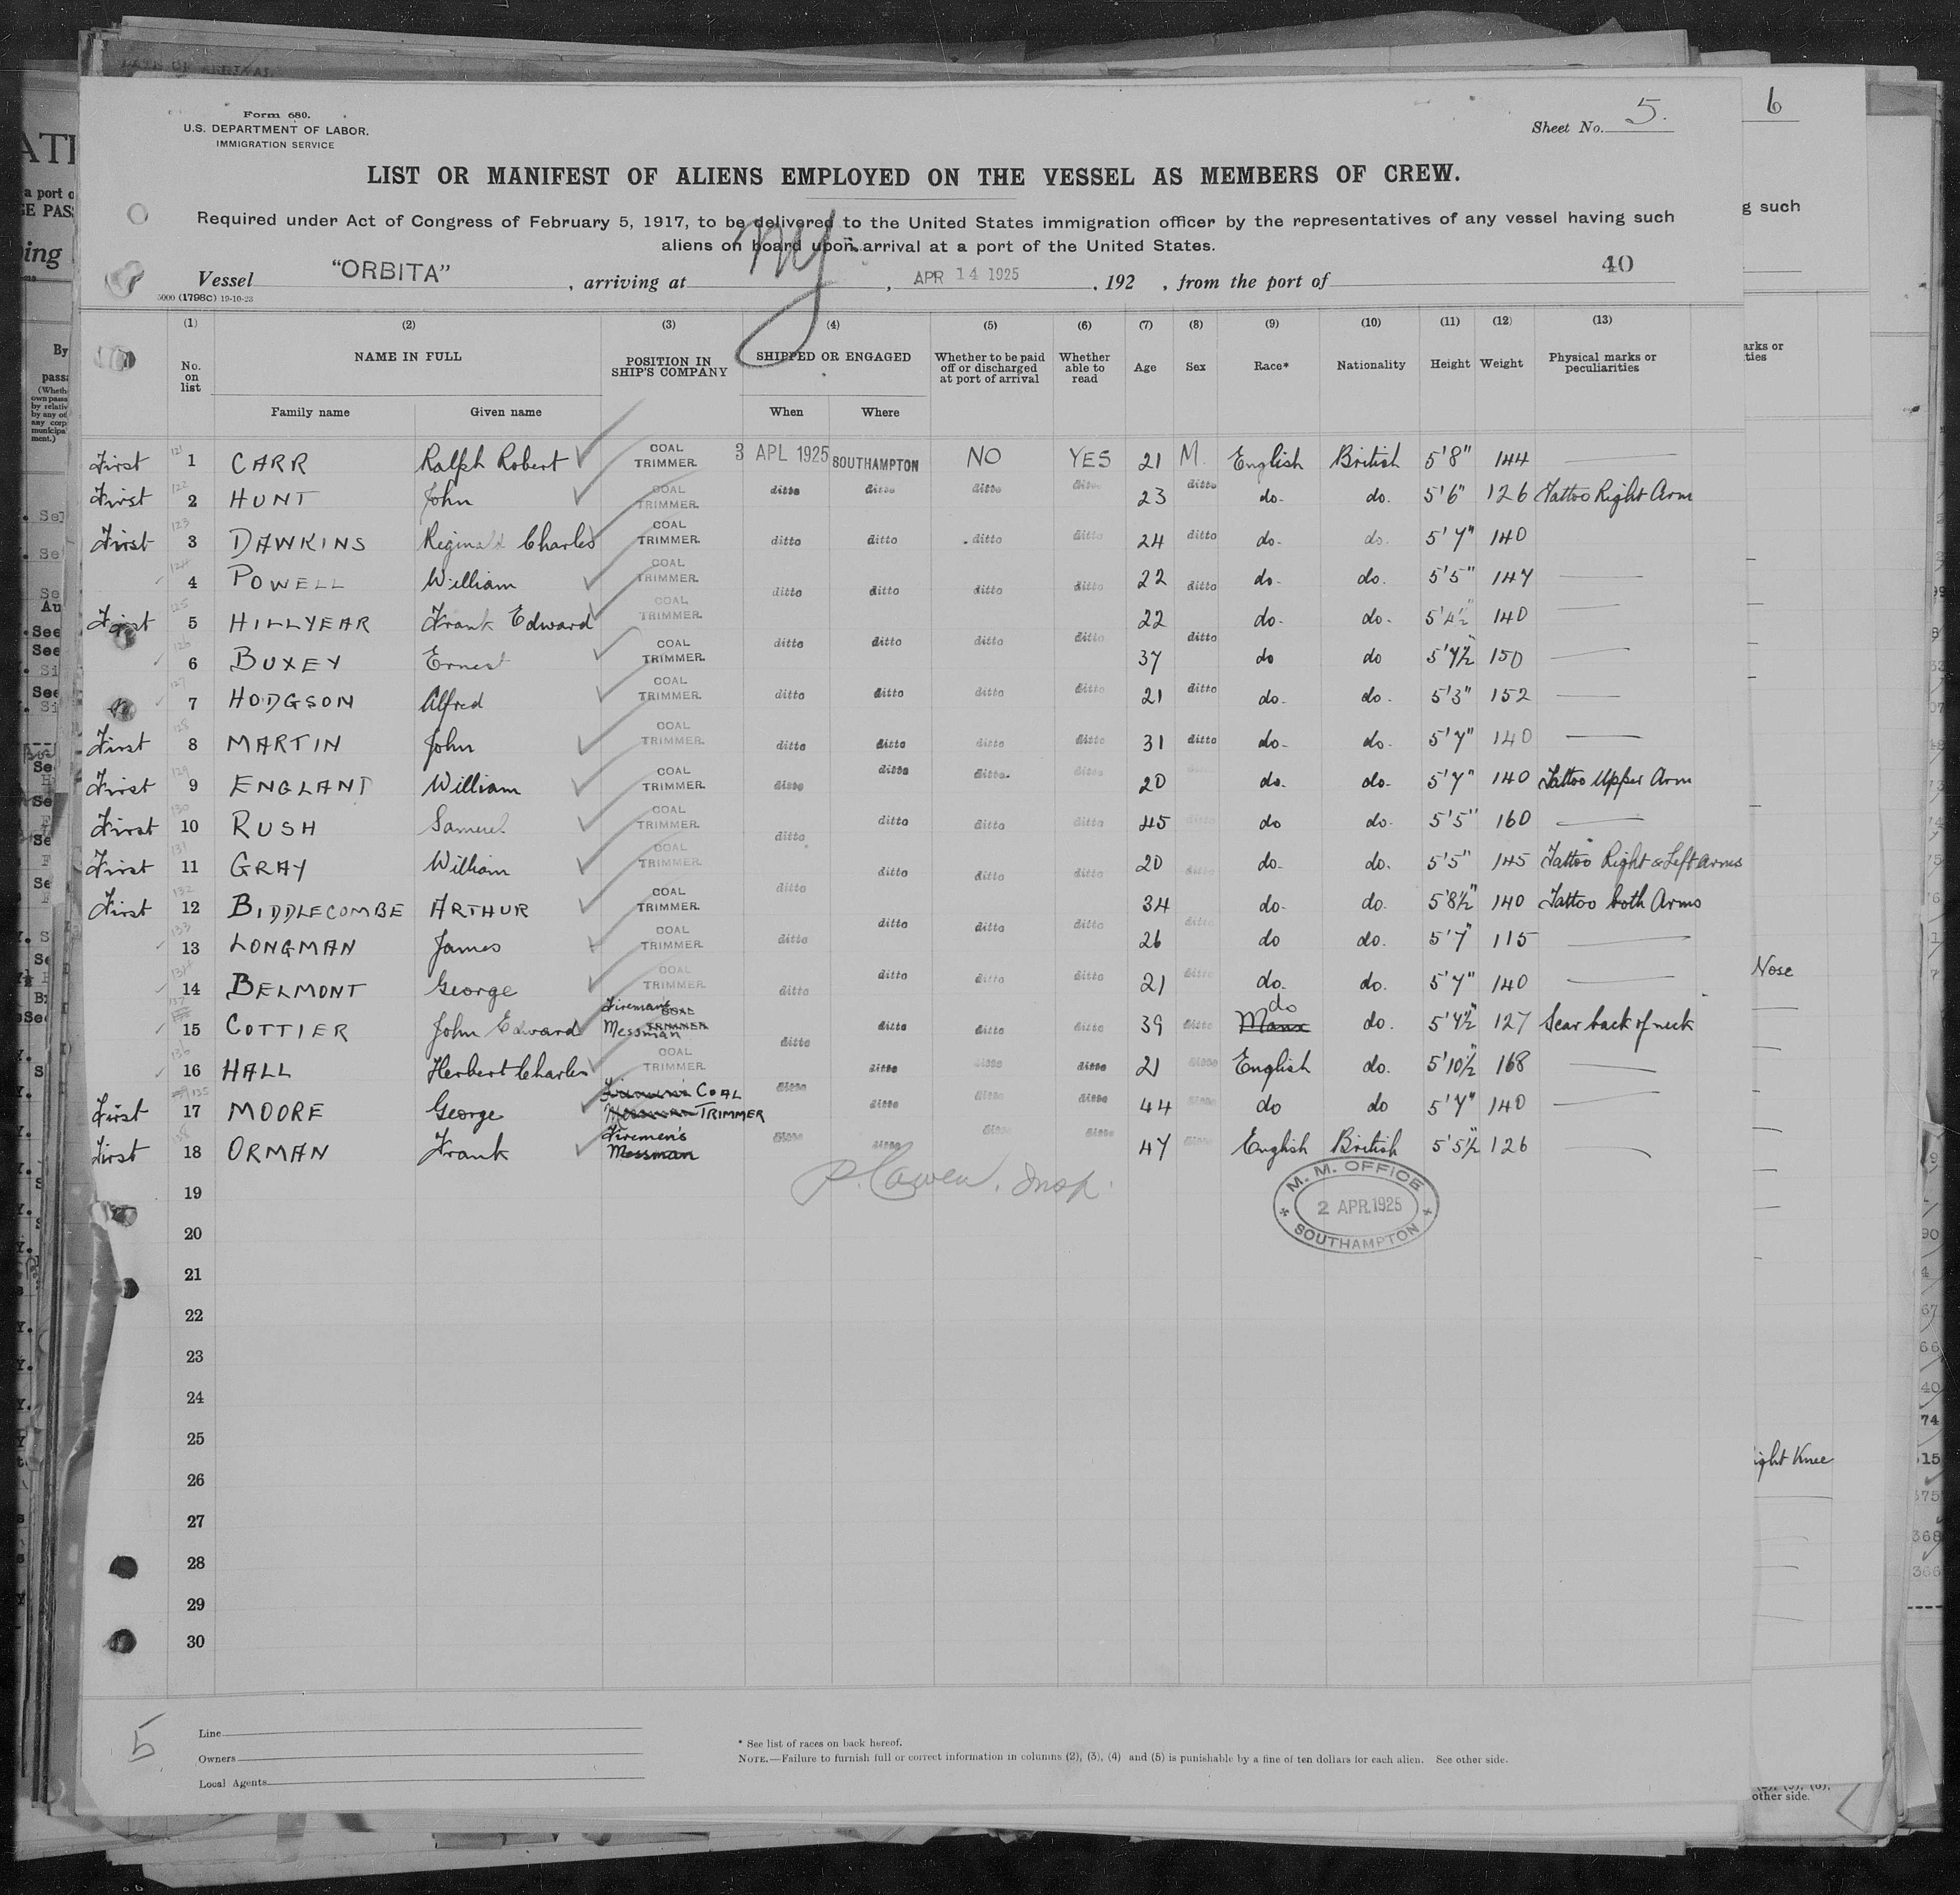 Form 680.
U.S. DEPARTMENT OF LABOR.
IMMIGRATION SERVICE
Sheet No. 5.
6
LIST OR MANIFEST OF ALIENS EMPLOYED ON THE VESSEL AS MEMBERS OF CREW.
Required under Act of Congress of February 5, 1917, to be delivered to the United States immigration officer by the representatives of any vessel having such
aliens on board upon arrival at a port of the United States.
Vessel "ORBITA", arriving at NY, APR 14 1925, 192 , from the port of 40
5000 (1798C) 19-10-23
(1) (2) (3) (4) (5) (6) (7) (8) (9) (10) (11) (12) (13)
No. on list NAME IN FULL POSITION IN SHIP'S COMPANY SHIPPED OR ENGAGED Whether to be paid off or discharged at port of arrival Whether able to read Age Sex Race* Nationality Height Weight Physical marks or peculiarities
Family name Given name When Where
First 121 1 CARR Ralph Robert COAL TRIMMER. 3 APL 1925 SOUTHAMPTON NO YES 21 M. English British 5'8" 144 —
First 122 2 HUNT John COAL TRIMMER. ditto ditto ditto ditto 23 ditto do- do. 5'6" 126 Tattoo Right Arm
First 123 3 DAWKINS Reginald Charles COAL TRIMMER. ditto ditto ditto ditto 24 ditto do- do. 5'7" 140
124 4 POWELL William COAL TRIMMER. ditto ditto ditto ditto 22 ditto do- do. 5'5" 147 —
First 125 5 HILLYEAR Frank Edward COAL TRIMMER. 22 do- do- 5'4½" 140 —
126 6 BUXEY Ernest COAL TRIMMER. ditto ditto ditto ditto 37 ditto do do 5'7½ 150 —
127 7 HODGSON Alfred COAL TRIMMER. ditto ditto ditto ditto 21 ditto do- do- 5'3" 152 —
First 128 8 MARTIN John COAL TRIMMER. ditto ditto ditto ditto 31 ditto do- do- 5'7" 140 —
First 129 9 ENGLANT William COAL TRIMMER. ditto ditto ditto. ditto 20 do. do- 5'7" 140 Tattoo Upper Arm
First 130 10 RUSH Samuel COAL TRIMMER. ditto ditto ditto ditto 45 ditto do do- 5'5" 160 —
First 131 11 GRAY William COAL TRIMMER. ditto ditto ditto 20 ditto do- do. 5'5" 145 Tattoo Right & Left Arms
First 132 12 BIDDLECOMBE ARTHUR COAL TRIMMER. ditto ditto ditto ditto 34 ditto do- do. 5'8½" 140 Tattoo both Arms
133 13 LONGMAN James COAL TRIMMER. ditto 26 do do. 5'7" 115 —
134 14 BELMONT George COAL TRIMMER. ditto ditto ditto ditto 21 ditto do. do. 5'7" 140 —
137 15 COTTIER John Edward Fireman's Messman COAL TRIMMER ditto ditto ditto ditto 39 ditto Manx do do. 5'7½" 127 Scar back of neck
136 16 HALL Herbert Charles COAL TRIMMER. ditto ditto ditto 21 ditto English do. 5'10½" 168 —
First 135 17 MOORE George Firemen's Messman COAL TRIMMER ditto ditto ditto ditto 44 ditto do do 5'7" 140 —
First 138 18 ORMAN Frank Firemen's Messman ditto ditto ditto ditto 47 ditto English British 5'5½" 126 —
P. Cowen, Insp.
M. M. OFFICE
2 APR. 1925
SOUTHAMPTON
19
20
21
22
23
24
25
26
27
28
29
30
5
Line
Owners
Local Agents
* See list of races on back hereof.
NOTE.—Failure to furnish full or correct information in columns (2), (3), (4) and (5) is punishable by a fine of ten dollars for each alien. See other side.
g such
arks or
ties
Nose
ight Knee
other side.